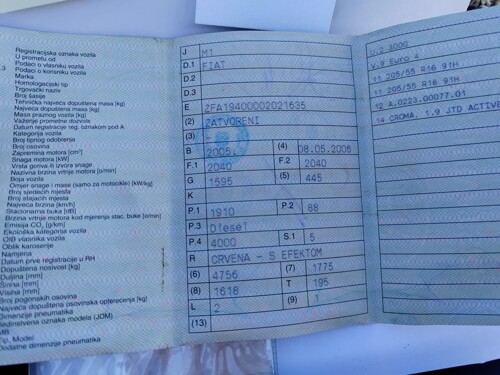 Registracijska oznaka vozila
U prometu od
Podaci o vlasniku vozila
Podaci o korisniku vozila
Marka
Homologacijski tip
Trgovački naziv
Broj šasije
Tehnička najveća dopuštena masa [kg]
Najveća dopuštena masa [kg]
Masa praznog vozila [kg]
Važenje prometne dozvole
Datum registracije reg. oznakom pod A
Kategorija vozila
Broj tipnog odobrenja
Broj osovina
Zapremina motora [cm³]
Snaga motora [kW]
Vrsta goriva ili izvora snage
Nazivna brzina vrtnje motora [o/min]
Boja vozila
Omjer snage i mase (samo za motocikle) [kW/kg]
Broj sjedećih mjesta
Broj stajaćih mjesta
Najveća brzina [km/h]
Stacionarna buka [dB]
Brzina vrtnje motora kod mjerenja stac. buke [o/min]
Emisija CO₂ [g/km]
Ekološka kategorija vozila
OIB vlasnika vozila
Oblik karoserije
Namjena
Datum prve registracije u RH
Dopuštena nosivost [kg]
Duljina [mm]
Širina [mm]
Visina [mm]
Broj pogonskih osovina
Najveća dopuštena osovinska opterećenja [kg]
Dimenzije pneumatika
Jedinstvena oznaka modela (JOM)
MB
Tip, Model
Dodatne dimenzije pneumatika
J M1
D.1 FIAT
D.2
D.3
E ZFA19400002021635
(2) ZATVORENI
(3) -
B 2005. (4) 08.05.2006
F.1 2040 F.2 2040
G 1595 (5) 445
K
P.1 1910 P.2 88
P.3 Diesel
P.4 4000 S.1 5
R CRVENA - S EFEKTOM
(6) 4756 (7) 1775
(8) 1618 T 195
L 2 (9) 1
(13)
U.2 3000
V.9 Euro 4
11 205/55 R16 91H
11 205/55 R16 91H
12 A.0223.00077.01
14 CROMA, 1.9 JTD ACTIVE